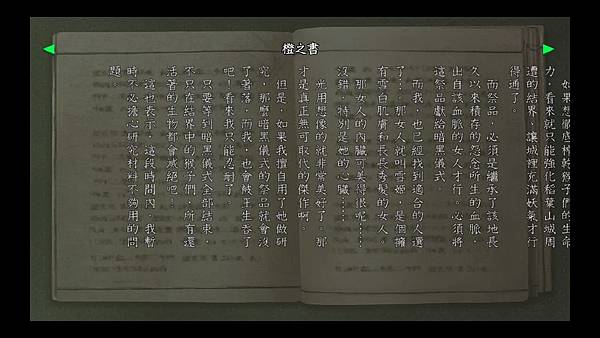 橙之書
如果想徹底榨乾猴子們的生命
力，看來就只能強化稻葉山城周
遭的結界，讓城裡充滿妖氣才行
得通了。
而祭品，必須是繼承了該地長
久以來積存的怨念所生的血脈，
由自該血脈的女人才行。必須將
這祭品獻給暗黑儀式。
而我，也已經找到適合的人選
了…那女人就叫雪姬，是個擁
有雪白肌膚和長長秀髮的女人。
那女人的內臟可美得很呢……
沒錯，特別是她的心臟……
光用想像的就非常美好了。那
才是真正無可取代的傑作啊。
但是，如果我擅自用了她做研
究，那麼暗黑儀式的祭品就會沒
了著落，而我，也會被王生吞了
吧！看來我只能忍耐了。
只要等到暗黑儀式全部結束，
不只在結界中的猴子們，所有還
活著的生物都會滅絕吧…
這也表示，這段時間內，我暫
時不必擔心研究材料不夠用的問
題。